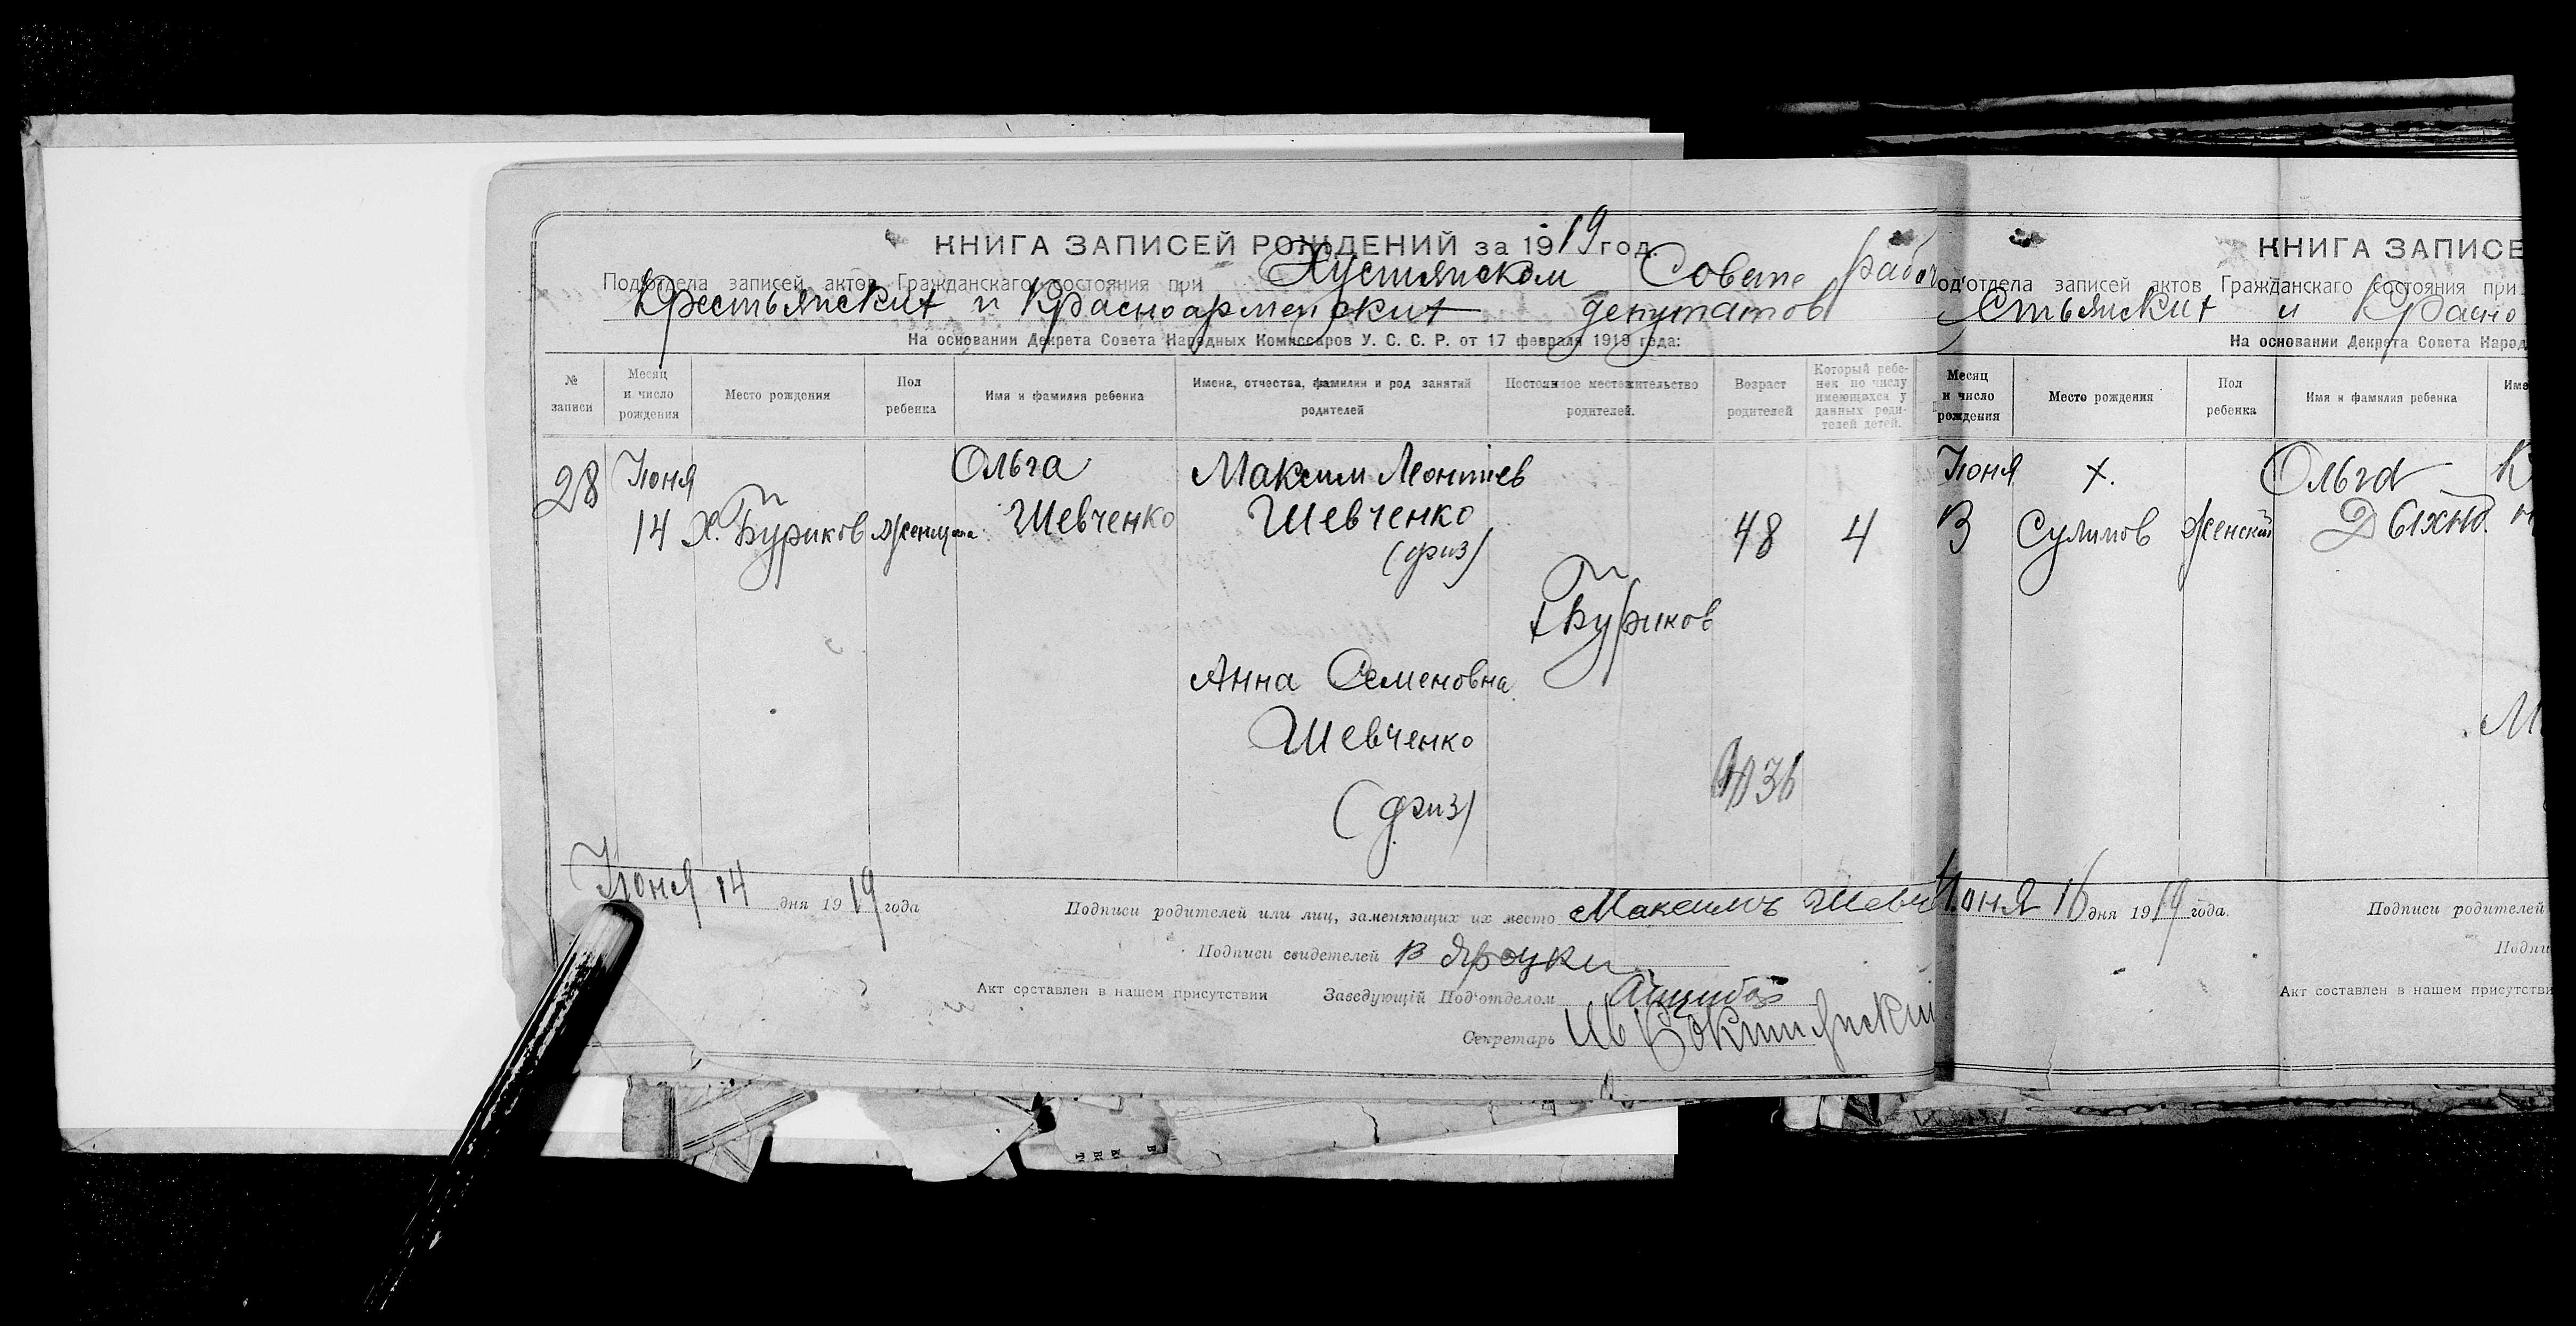 КНИГА ЗАПИСЕЙ РОЖДЕНИЙ за 1919 год
Под'отдела записей актов Гражданскаго состояния при Хустянском Совете рабоч
Крестьянских и Красноармейских депутатов
На основании Декрета Совета Народных Комиссаров У. С. С. Р. от 17 февраля 1919 года:
№ записи
Месяц и число рождения
Место рождения
Пол ребенка
Имя и фамилия ребенка
Имена, отчества, фамилии и род занятий родителей
Постоянное местожительство родителей.
Возраст родителей
Который ребенек по числу имеющихся у данных родителей детей.
28
Июня
14
Х. Буриков
Женщина
Ольга
Шевченко
Максим Леонтиев
Шевченко
48
4
х Буриков
Анна Семеновна
Шевченко
36
Июня 14 дня 1919 года
Подписи родителей или лиц, заменяющих их место Максимъ Шевч
Подписи свидетелей В
Акт составлен в нашем присутствии Заведующій Под'отделом
Секретарь
КНИГА ЗАПИСЕ
од'отдела записей актов Гражданскаго состояния при
стьянских и Красно
На основании Декрета Совета Народ
Месяц и число рождения
Место рождения
Пол ребенка
Имя и фамилия ребенка
Име
Июня
х.
Сулимов
Женский
Ольга
Июня 16 дня 1919 года.
Подписи родителей
Подпи
Акт составлен в нашем присутстви